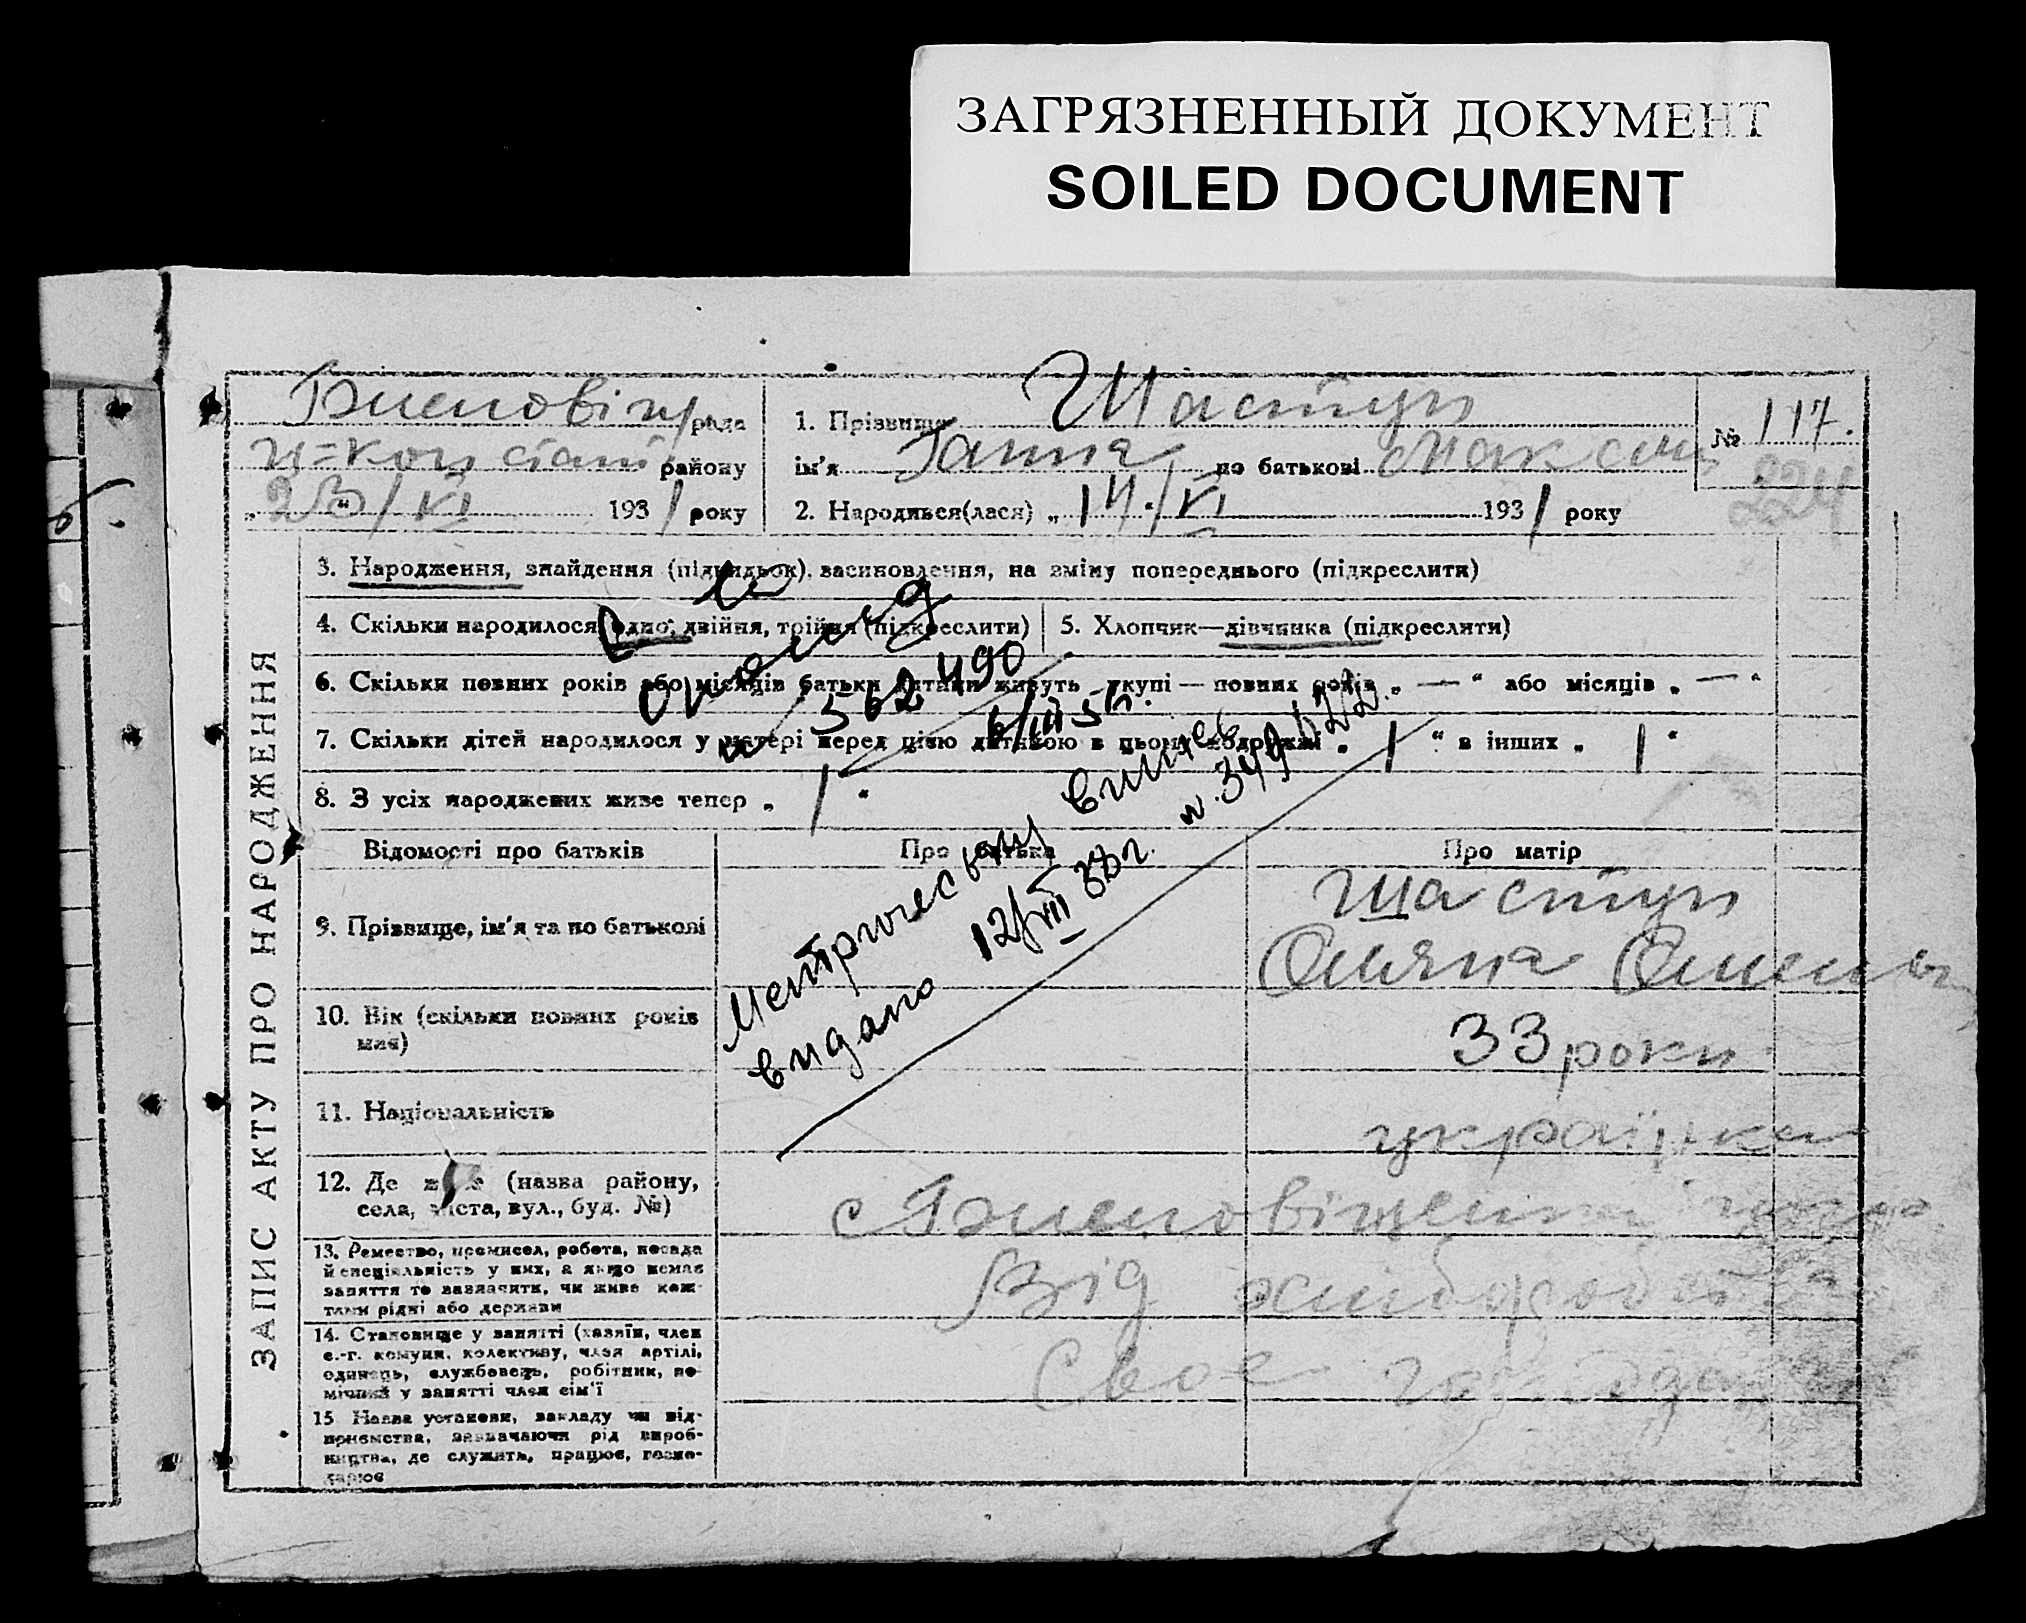 ЗАГРЯЗНЕННЫЙ ДОКУМЕНТ
SOILED DOCUMENT
рада
району
„ 23/VI 1931 року
1. Прізвище Шастун
ім'я Ганна по батькові Максим
№ 117.
224
2. Народився(лася) „ 14/VI 1931 року
ЗАПИС АКТУ ПРО НАРОДЖЕННЯ
3. Народження, знайдення (підкидьок), засиновлення, на зміну попереднього (підкреслити)
4. Скільки народилося одно, двійня, трійня (підкреслити)
5. Хлопчик—дівчинка (підкреслити)
6. Скільки повних років або місяців батьки дитини живуть укупі — повних років „ — “ або місяців „ — “
7. Скільки дітей народилося у матері перед цією дитиною в цьому подружжі „ 1 “ в інших „ 1 “
8. З усіх народжених живе тепер „ 1 “
562490
6/III 5
Метрическую выпись
видано 12/VII 38 г.
Відомості про батьків
Про батька
Про матір
9. Прізвище, ім'я та по батькові
Шастун
10. Вік (скільки повних років мав)
33 роки
11. Національність
українка
12. Де живе (назва району, села, міста, вул., буд. №)
13. Ремество, промисел, робота, посада
й спеціяльність у них, а якщо немає
заняття то зазначити, чи живе кош-
тами рідні або держави
Від хліборобства
14. Становище у занятті (хазяїн, член
с.-г. комуни, колективу, член артілі,
одинець, службовець, робітник, по-
мічний у занятті член сім'ї
Своє
15 Назва установи, закладу чи під-
приємства, зазначаючи рід вироб-
ництва, де служить, працює, госпо-
дарює